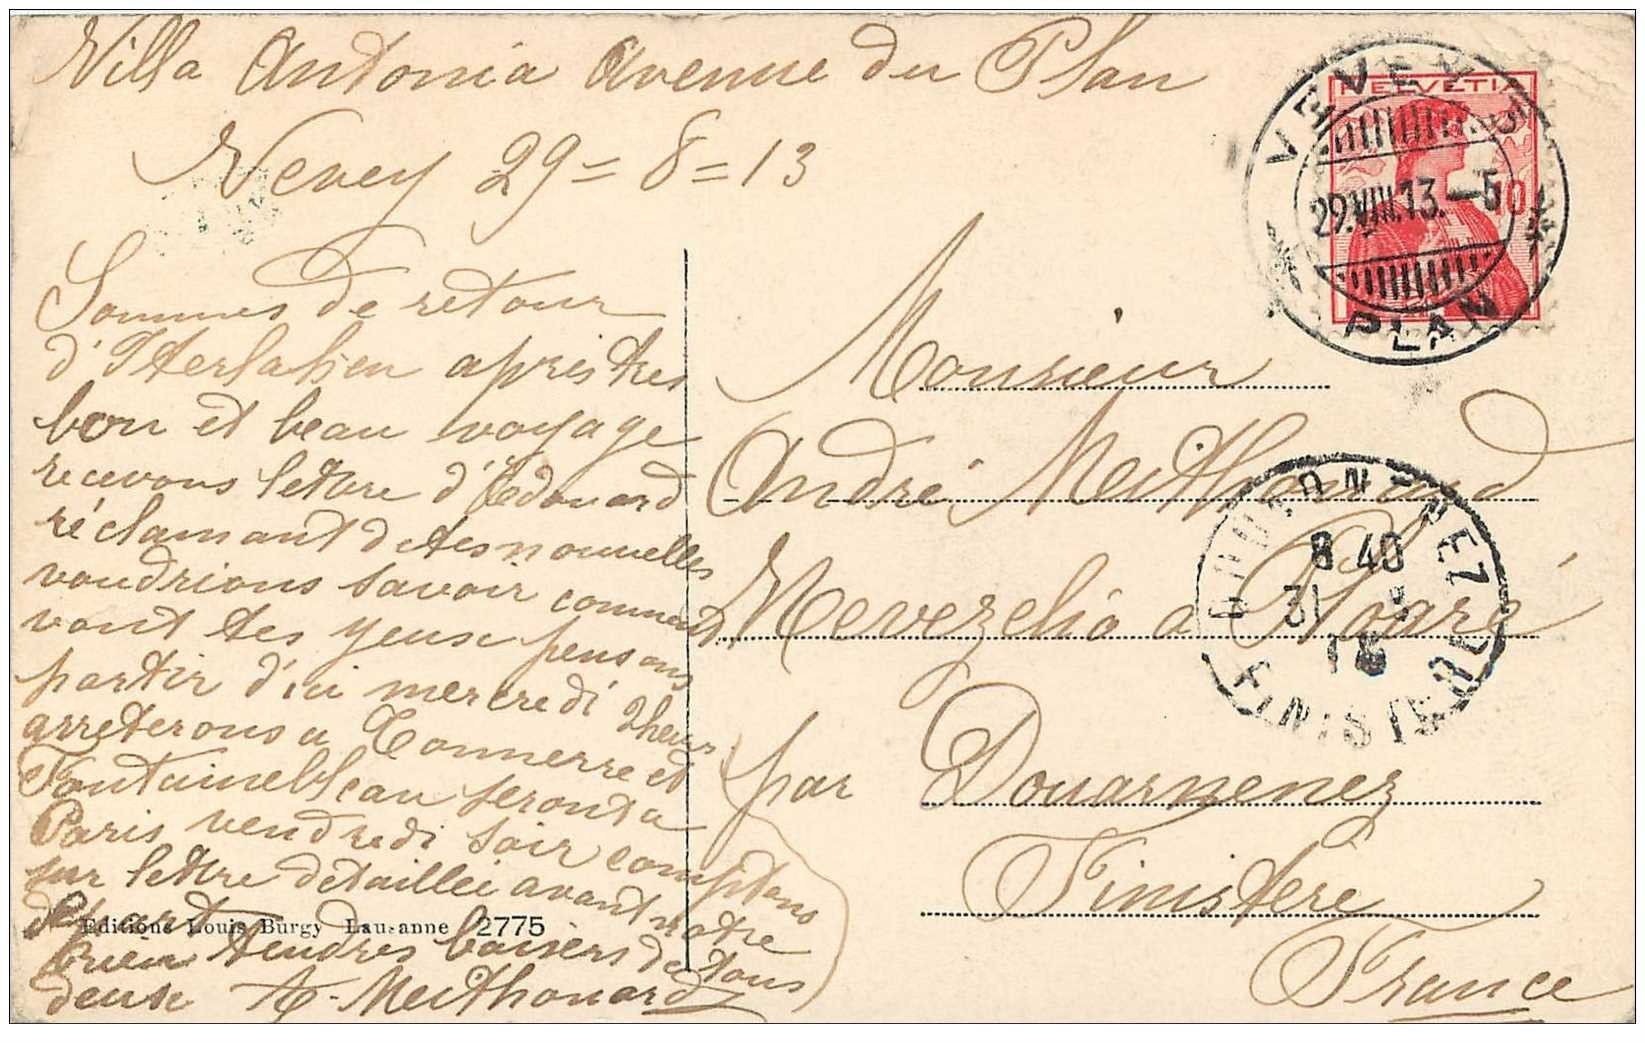 Villa Antonia Avenue du Plan
Vevey 29=8=13
Sommes de retour
d'Iterlaken après tres
bon et beau voyage
recevons lettre d'Edouard
réclamant detes nouvelles
voudrions savoir comment
vont tes yeux pensons
partir d'ici mercredi 2 heures
arreterons a Tonnerre et
Fontainebleau seront a
Paris vendredi soir comptons
sur lettre detaillée avant notre
depart
bien tendres baisers de tous
deux A. Meithouard
Editions Louis Burgy Lausanne 2775
HELVETIA
10
VEVEY
29.VIII.13.-5
PLAN
Monsieur
André Meithouard
Mevezelia a Ploaré
par Douarnenez
Finistère
France
8 40
31
FINISTERE